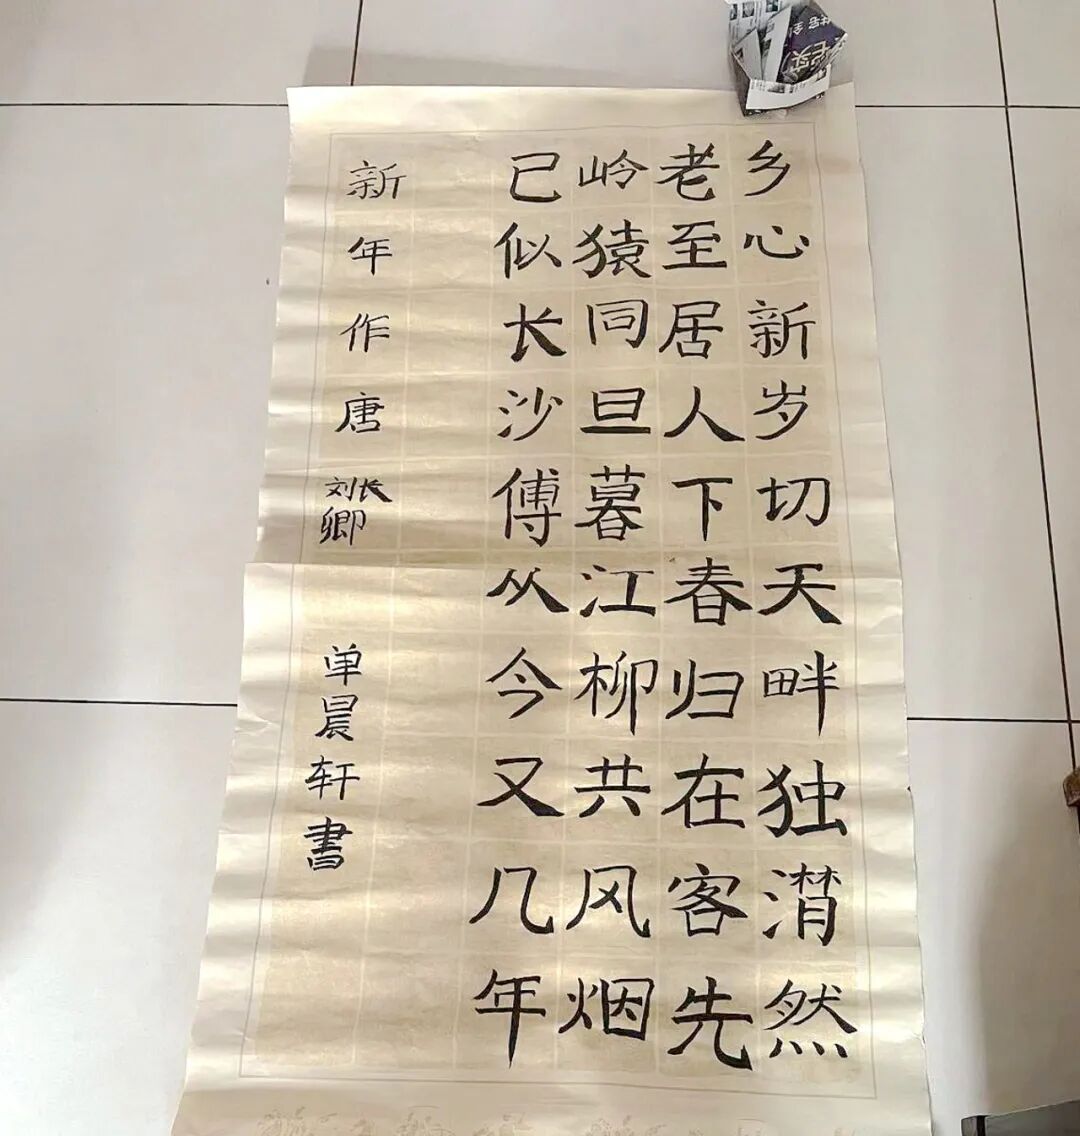 乡心新岁切天畔独潸然
老至居人下春归在客先
岭猿同旦暮江柳共风烟
已似长沙傅从今又几年
新年作唐刘长卿
单晨轩書